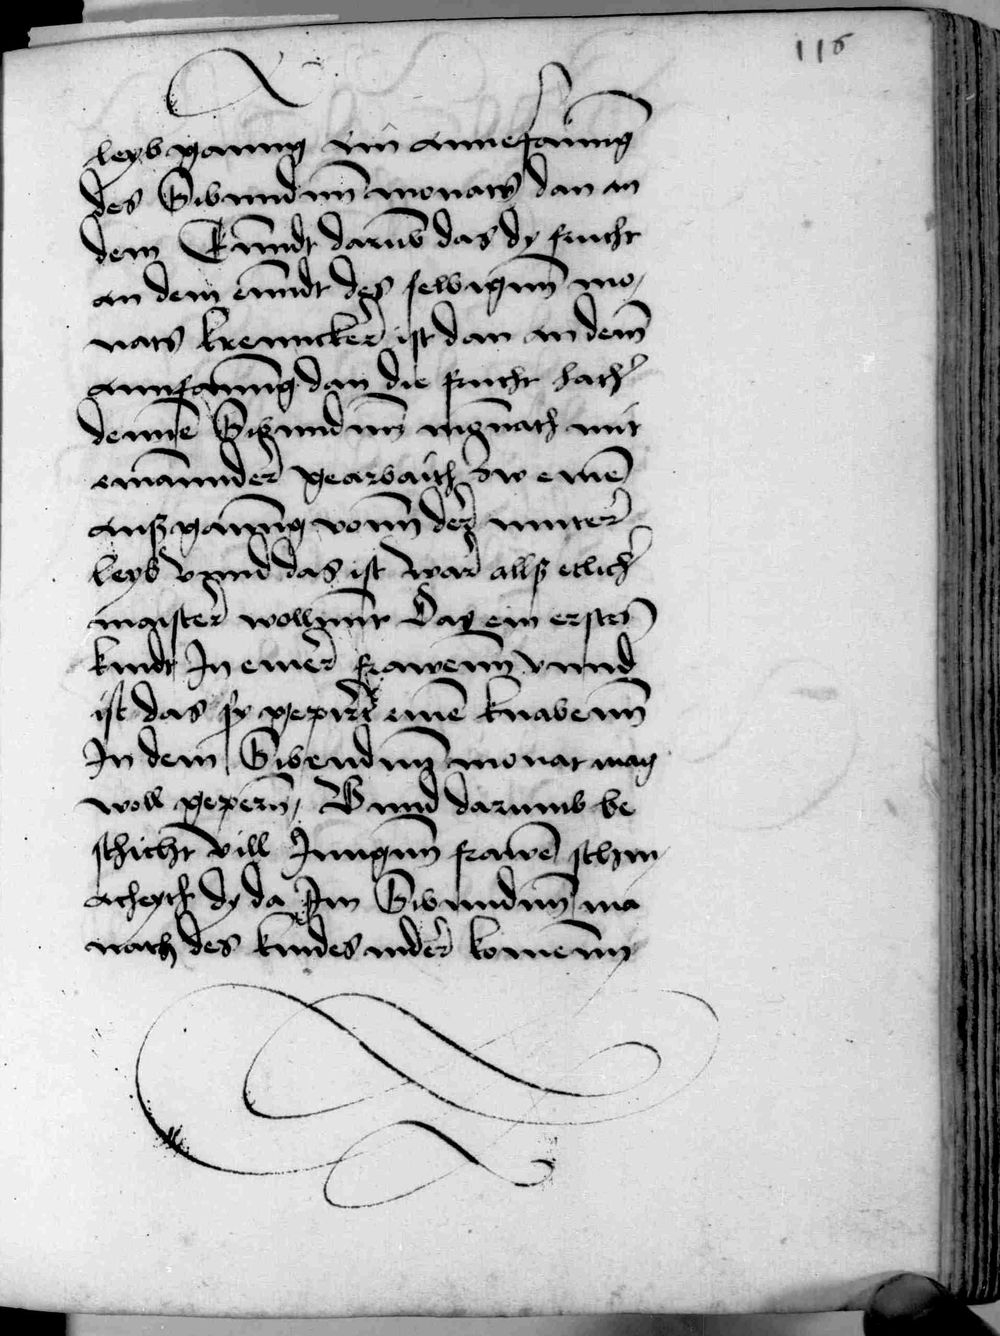 116
leyb ganng im annefanng
des Sibundnn monats dan an
dem Enndt darumb das dy frucht
an dem enndt des selbigenn mo,
nats krenncker ist dan an dem
annfanng dan die frucht hath
denne Sibundnn monath mit
einannder gearbaith zw eine
auß ganng vonn der mutter
leyb vnnd das ist war allß etlich
maister wollennt Das ein erstes
kindt In einer frawenn vnnd
ist das sy gepirt eine knabenn
In dem Sibendenn monat mag
woll gepern, Vnnd darumb be
schicht vill Jungenn frawe schm
acheyth dy da Im Sibundnn mo
nath des kindes nider komenn